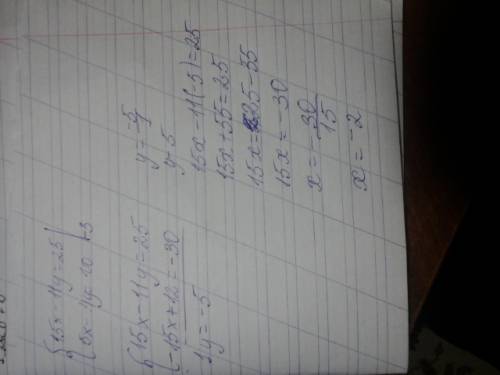 {15x-11y=25
{5x-4y=10 |·3
{15x-11y=25
{-15x+12=-30
1y=-5
y=-5
y-5
15x-11(-5)=25
15x+55=25
15x=25-55
15x=-30
x=-30/15
x=-2